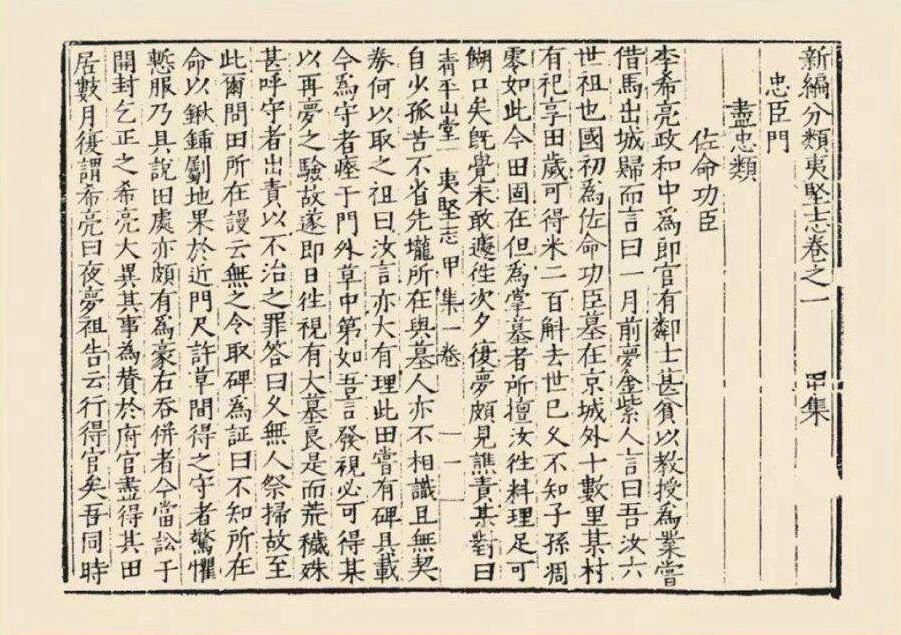 新編分類夷堅志卷之一 甲集
忠臣門
盡忠類
佐命功臣
李希亮政和中爲郎官有鄰士甚貧以教授爲業嘗
借馬出城歸而言曰一月前夢金紫人言曰吾汝六
世祖也國初爲佐命功臣墓在京城外十數里某村
有祀享田歲可得米二百斛去世已久不知子孫凋
零如此今田固在但爲掌墓者所擅汝徃料理足可
餬口矣旣覺未敢遽徃次夕復夢頗見譙責某對曰
清平山堂 夷堅志甲集一卷 一
自少孤苦不省先壠所在與墓人亦不相識且無契
券何以取之祖曰汝言亦大有理此田嘗有碑具載
今爲守者瘞于門外草中第如吾言發視必可得某
以再夢之驗故遂卽日徃視有大墓良是而荒穢殊
甚呼守者出責以不治之罪答曰久無人祭掃故至
此爾問田所在謾云無之令取碑爲証曰不知所在
命以鍬鍤劚地果於近門尺許草間得之守者驚懼
慙服乃具說田處亦頗有爲豪右吞併者今當訟于
開封乞正之希亮大異其事為賛於府官盡得其田
居數月復謂希亮曰夜夢祖告云行得官矣吾同時